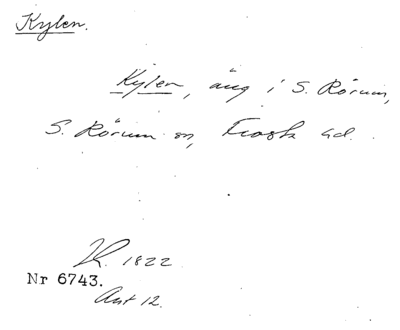 Kylen.
Kylen, äng i S. Rörum,
S. Rörum sn, Frosta hd.
1822
Nr 6743.
Akt 12.